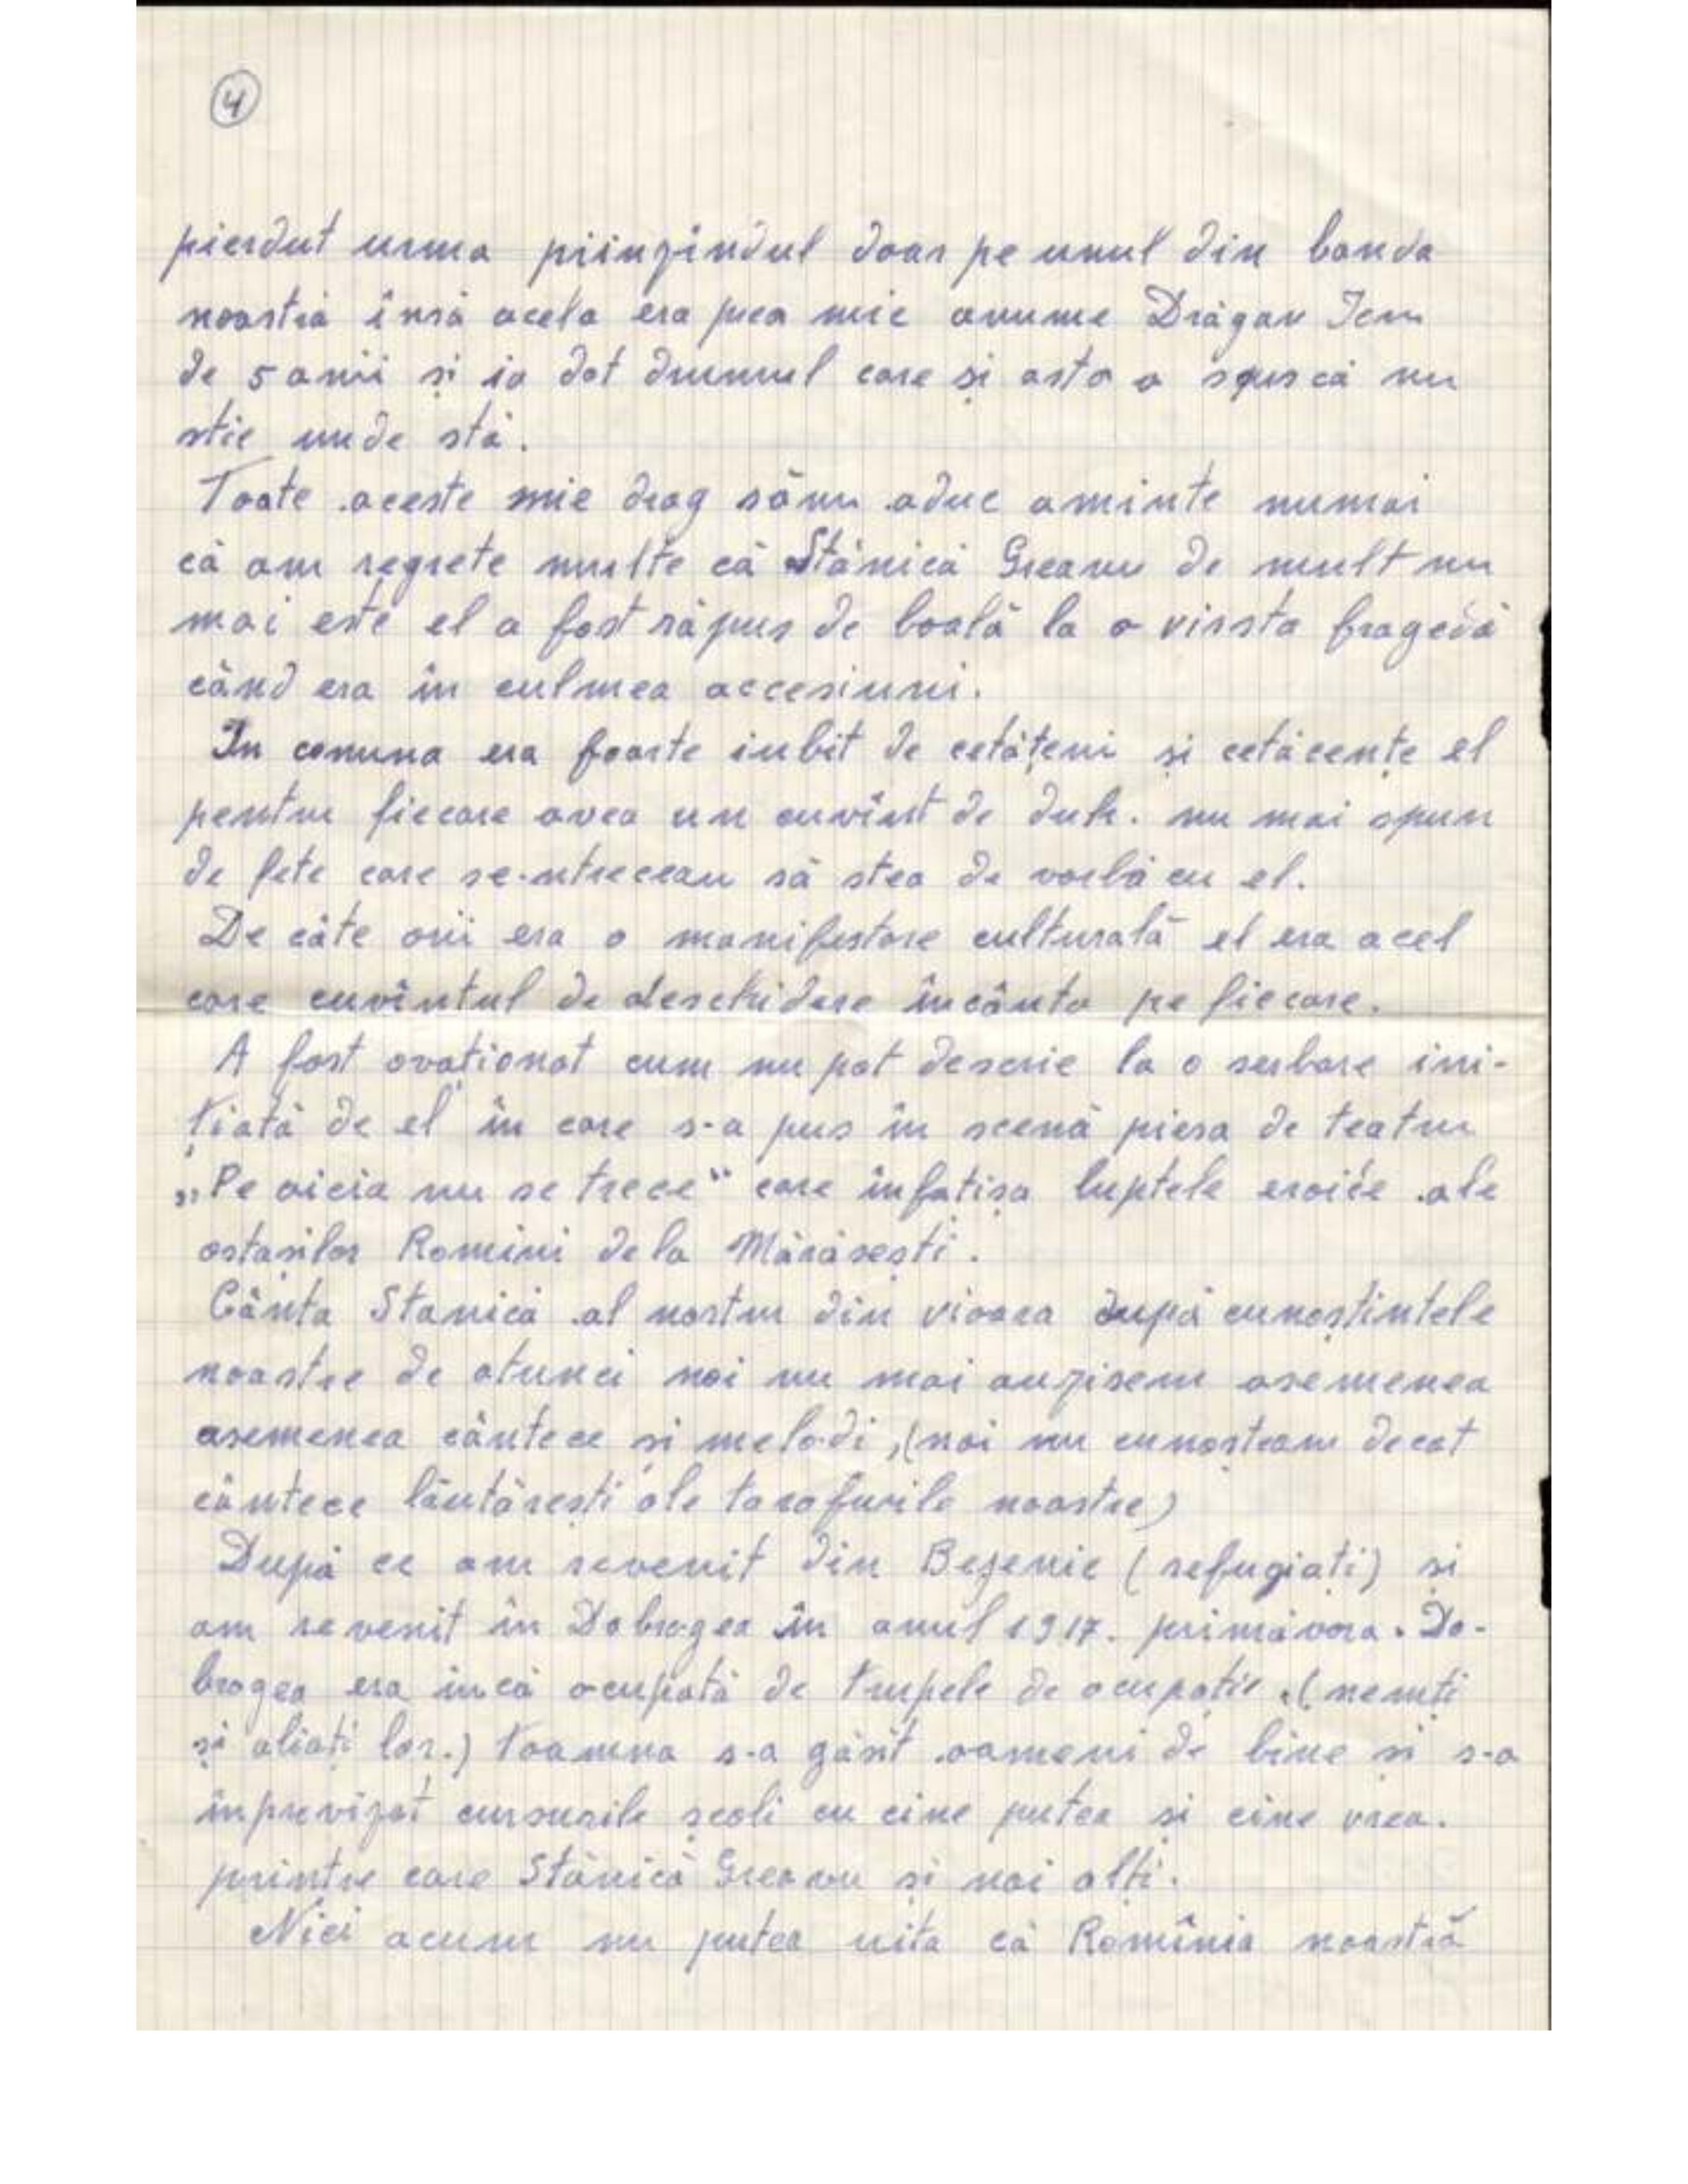 4
pierdut urma priinzindul doar pe unul din banda
noastră însă acela era prea mic anume Drăgan
de 5 anii și ia dat drumul care și asta a spus că nu
stie unde stă.
Toate aceste mie drag sămi aduc aminte numai
că am regrete multe că Stănică Greanu de mult nu
mai este el a fost răpus de boală la o virsta fragedă
când era în culmea accesiuni.
In comuna era foarte iubit de cetățeni și cetăcențe el
pentru fiecare avea un cuvînt de duh. nu mai spun
de fete care se-ntreceau să stea de vorbă cu el.
De câte orii era o manifestare culturală el era acel
care cuvîntul de deschidere încânta pe fiecare.
A fost ovaționat cum nu pot descrie la o serbare ini-
țiată de el în care s-a pus în scenă piesa de teatru
„Pe aicia nu se trece" care înfatișa luptele eroice ale
ostașilor Romini dela Mărăsești.
Cânta Stanică al nostru din vioara după cunoștintele
noastre de atunci noi nu mai auzisem asemenea
asemenea cântece și melodi, (noi nu cunoșteam decat
cântece lăutărești ale tarafurile noastre)
După ce am revenit din Bejenie (refugiați) și
am revenit în Dobrogea în anul 1917. primăvara. Do-
brogea era incă ocupată de trupele de ocupație. (nemți
și aliați lor.) toamna s-a găsit oameni de bine și s-a
inprevizat cursurile școli cu cine putea și cine vrea.
printre care Stănică Greanu și noi alți.
Nici acum nu putea uita că Romînia noastră